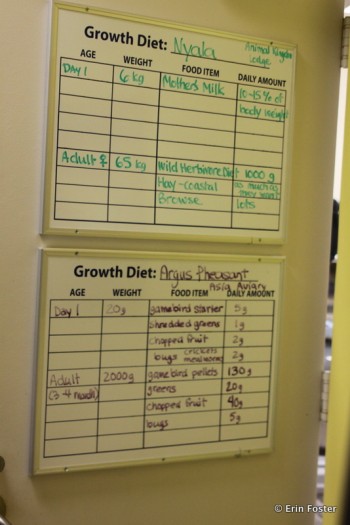 Growth Diet: Nyala Animal Kingdom Lodge
AGE WEIGHT FOOD ITEM DAILY AMOUNT
Day 1 6 kg Mothers Milk 10-15% of
body weight
Adult ♀ 65 kg Wild Herbivore Diet 1000 g
Hay-coastal as much as they want
Browse lots
Growth Diet: Argus Pheasant
Asia Aviary
AGE WEIGHT FOOD ITEM DAILY AMOUNT
Day 1 20g gamebird starter 5g
shredded greens 1g
chopped fruit 2g
bugs crickets mealworms 2g
Adult 2000g gamebird pellets 130g
(3-4 month) greens 20g
chopped fruit 40g
bugs 5g
© Erin Foster